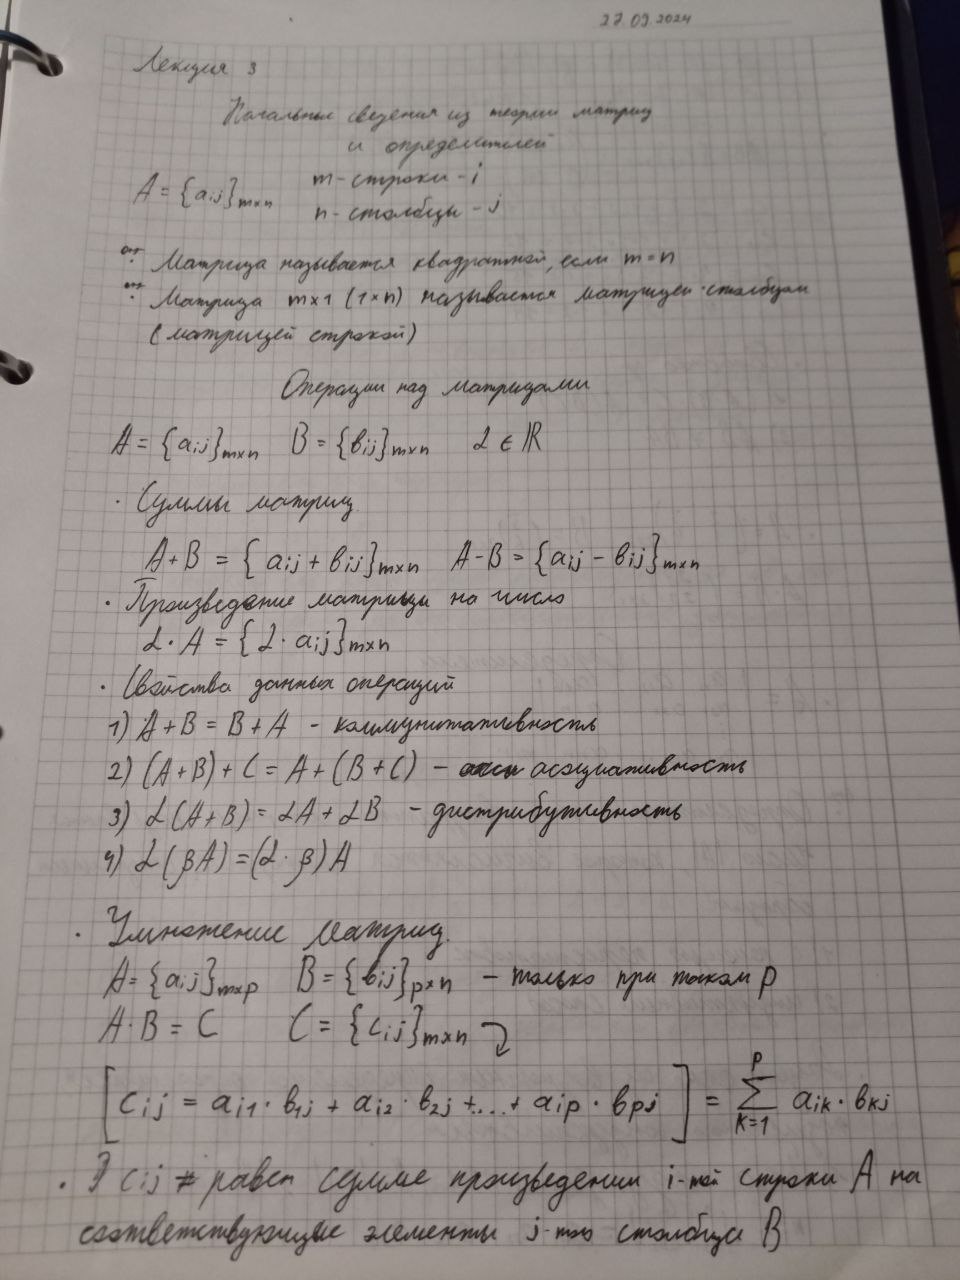 27.09.2024
Лекция 3
Начальные сведения из теории матриц
и определителей
A = {aij}m×n m - строки - i
n - столбцы - j
Матрица называется квадратной, если m = n
Матрица m×1 (1×n) называется матрицей-столбцом
(матрицей строкой)
Операции над матрицами
A = {aij}m×n B = {bij}m×n α ∈ ℝ
· Суммы матриц
A+B = {aij + bij}m×n A-B = {aij - bij}m×n
· Произведение матрицы на число
α · A = {α · aij}m×n
· Свойства данных операций
1) A+B = B+A - коммунитативность
2) (A+B)+C = A+(B+C) - ассациативность
3) α(A+B) = αA + αB - дистрибутивность
4) α(βA) = (α · β)A
· Умножение матриц.
A = {aij}m×p B = {bij}p×n - только при таком p
A·B = C C = {cij}m×n
[cij = ai1 · b1j + ai2 · b2j + ... + aip · bpj] = ∑ᵖₖ₌₁ aik · bkj
· Э cij равен сумме произведении i-той строки A на
соответствующие элементы j-того столбца B